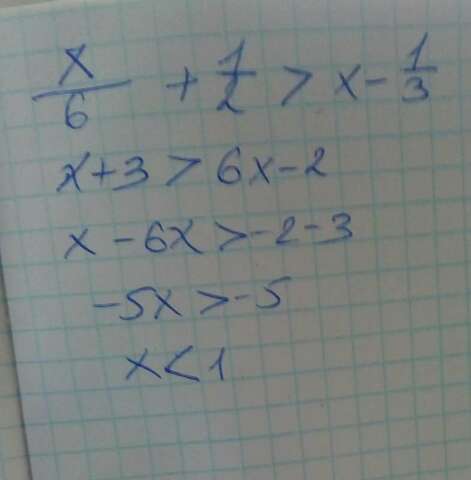 x/6 + 1/2 > x - 1/3
x+3 > 6x-2
x - 6x > -2-3
-5x > -5
x < 1